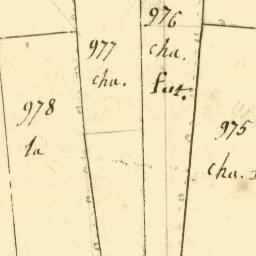 976
cha.
fut.
977
cha.
978
la
975
cha.